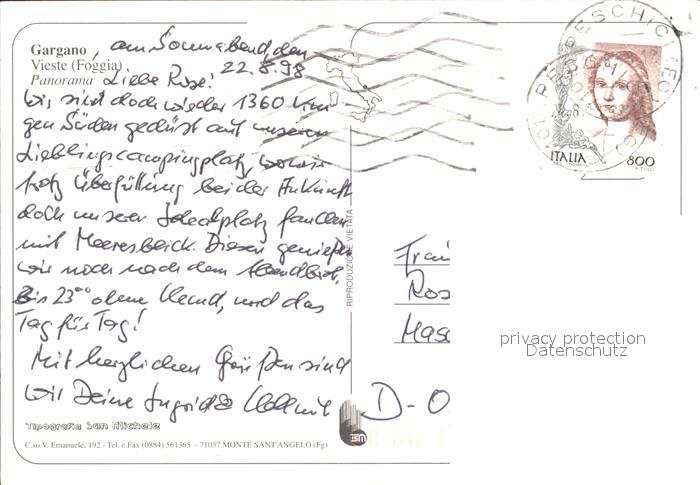 Gargano
Vieste (Foggia)
Panorama
am Sonnabend, den
22.8.98
Liebe Rose!
Wir sind doch wieder 1360 km
gen Süden gedüst auf unseren
Lieblingscampingplatz, wo wir
trotz Überfüllung bei der Ankunft
doch unseren Idealplatz fanden
mit Meeresblick. Diesen genießen
wir noch nach dem Abendbrot
bis 23°° ohne Hemd, und das
Tag für Tag!
Mit herzlichen Grüßen sind
wir Deine Ingrid &
Tipografia San Michele
C.so V. Emanuele, 192 - Tel. e Fax (0884) 561365 - 71037 MONTE SANT'ANGELO (Fg)
RIPRODUZIONE VIETATA
PESCHICI (FG)
ITALIA 800
Ros
D-0
privacy protection
Datenschutz